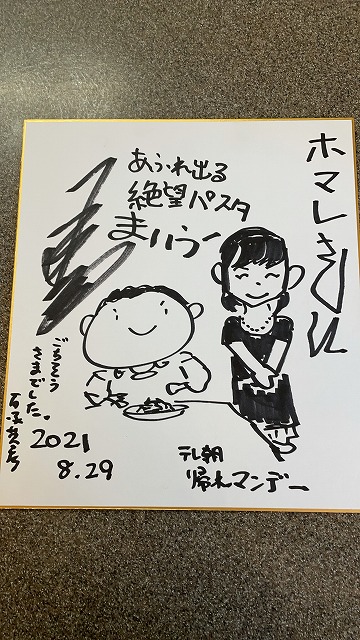 ホマレさん
あふれ出る
絶望パスタ
まいうー
ごちそう
さまでした。
2021
8.29
テレ朝
帰れマンデー